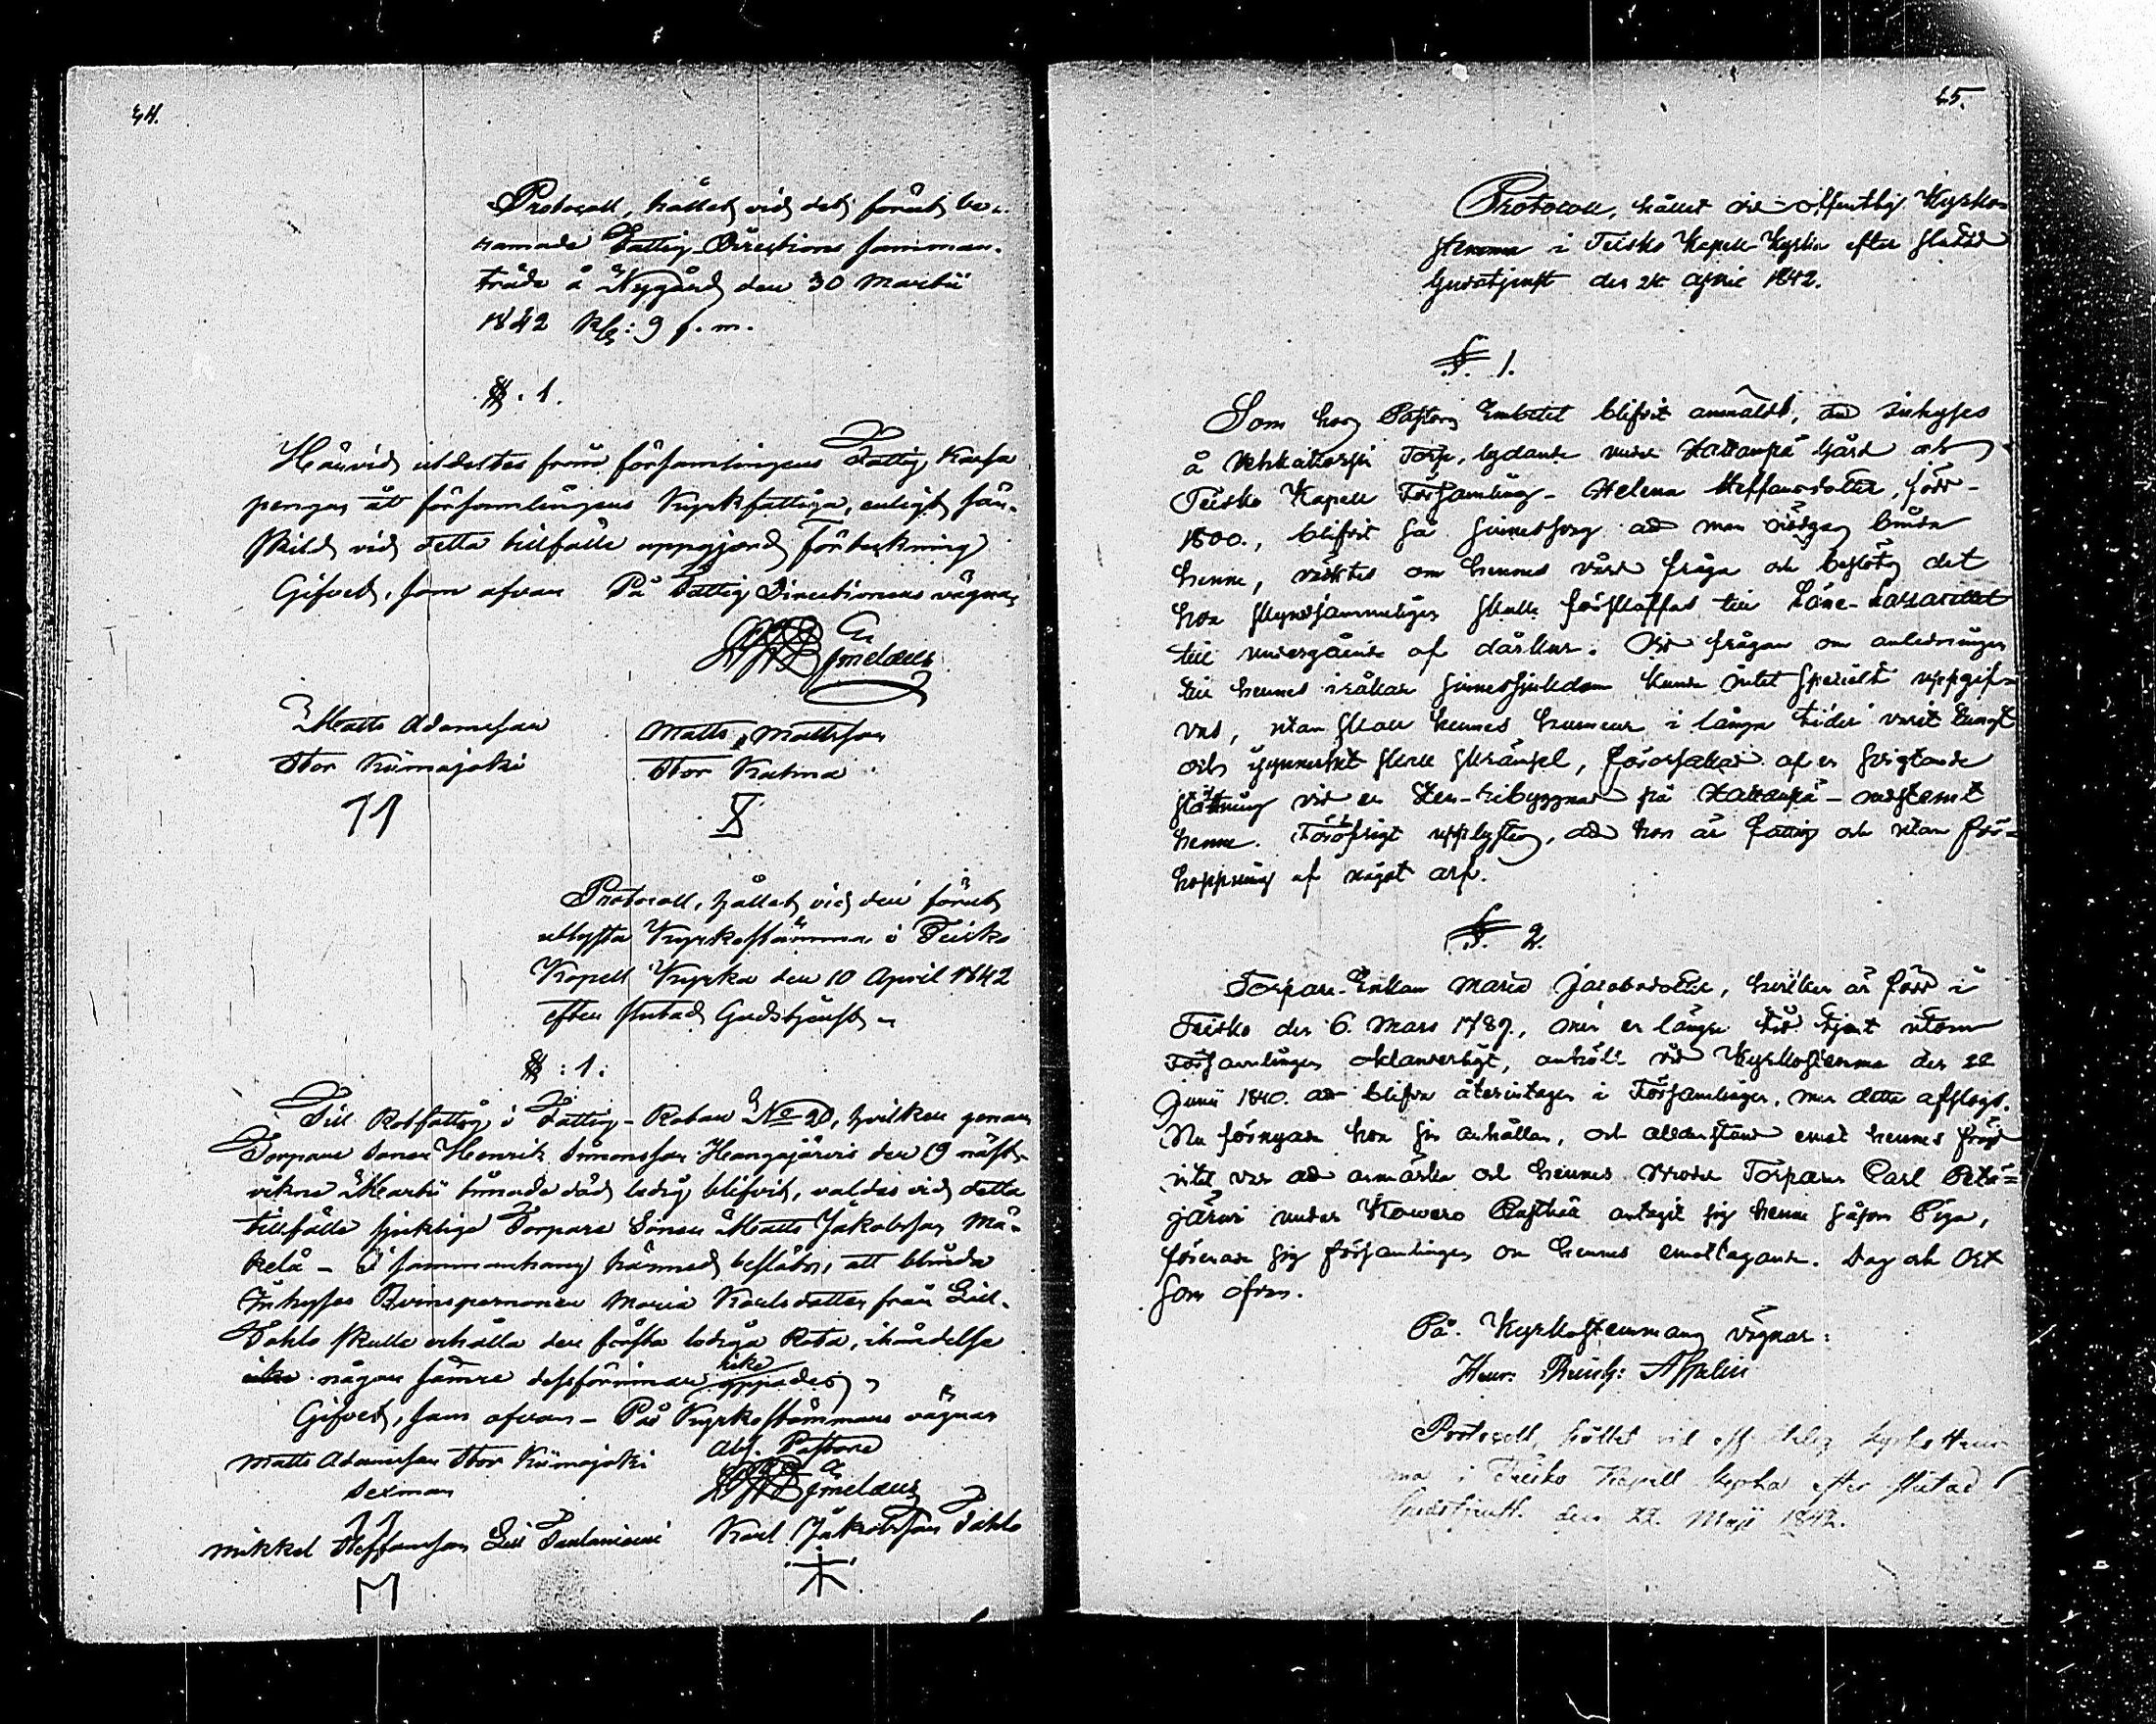 44.
Protocoll, hållet vid det förut be-
ramade Fattig Directions samman-
träde å Nygård den 30 Martii
1842 Kl: 9 f. m.
§. 1.
Härvid utdeltes från församlingens Fattig Kassa
pengar åt församlingens Kyrkfattiga, enligt sär-
skild vid detta tillfälle uppgjord förteckning
Gifvet, som ofvan På Fattig Directionens vägnar
Gr Smelaeus
Matts Adamsson
Stor Kiimajoki
Matts Mattsson
Stor Katina
Protocoll, hållet vid den förut
utlysta Kyrkostämma i Teisko
Kapell Kyrka den 10 April 1842
efter slutad Gudstjenst
§: 1:
Till Rotfattig i Fattig-Rotan No 20, hvilken genom
Torpare Sonen Henrik Simonsson Hangajärvis den 19 näst-
vikne Martii timade död ledig blifvit, valdes vid detta
tillfälle sjuklige Torpare Sonen Matts Jakobsson Mä-
kelä - I sammanhang härmed beslöts, att blinda
Inhyses Qvinspersonen Maria Karlsdotter från Lill-
Pohlo skulle erhålla den första lediga Rota, ihändelse
icke någon sämre dessförinnan yppades
Gifvet, som ofvan - På Kyrkostämmans vägnar
Adj. Pastoris
Matts Adamsson Stor Kiimajoki
Sexman
Gr Smelaeus
Mikkel Steffansson Lill Karl Jakobsson Pohlo
45.
Protocoll, hållet vid offentlig Kyrko-
stemma i Teisko Kapell-Kyrka efter slutad
Gudstjenst den 24 April 1842.
§. 1.
Som hos Pastors Embetet blifvit anmäldt, att inhyses
å Torp, lydande under Kaltanpä Gård och
Teisko Kapell Församling - Helena Steffansdotter, född
1800., blifvit så sinnessvag att man nödgas binda
henne, väcktes om hennes vård fråga och beslöts det
hon skyndsammeligen skulle förskaffas till Läne-Lazarettet
till undergående af dårkur. Vid frågan om anledningen
till hennes iråkade sinnessjukdom kunde intet specielt uppgif-
vas, utan skall hennes humeur i långa tider varit tungt
och synnerligt skall skrämsel, förorsakad af en
vid en Sten-ribyggnad på Kaltanpä - medtemt
henne. Föröfrigt upplystes, att hon är fattig och utan för-
hoppning af något arf.
§. 2.
Torpare-Enkan Maria Jacobsdotter, hvilken är född i
Teisko den 6. Mars 1789., men en längre tid tjent utom
Församlingen oklanderligt, anhöll vid Kyrkostemma den 22
Junii 1840. att blifva återintagen i Församlingen, men detta afslogs.
Nu förnyade hon sin anhållan, och alldenstund emot hennes frejd
intet var att anmärka och hennes Broder Torparen Carl Petä-
järvi under Kowero Rusthåll antagit sig henne såsom Piga,
förenade sig församlingen om hennes emottagande. Dag och Ort
som ofvan.
På Kyrkostemmans vägnar:
Henr: Reinh:
Protocoll, hållet vid offentelig Kyrkostem-
ma i Teisko Kapell Kyrka efter slutad
Gudstjenst den 22. Maji 1842.